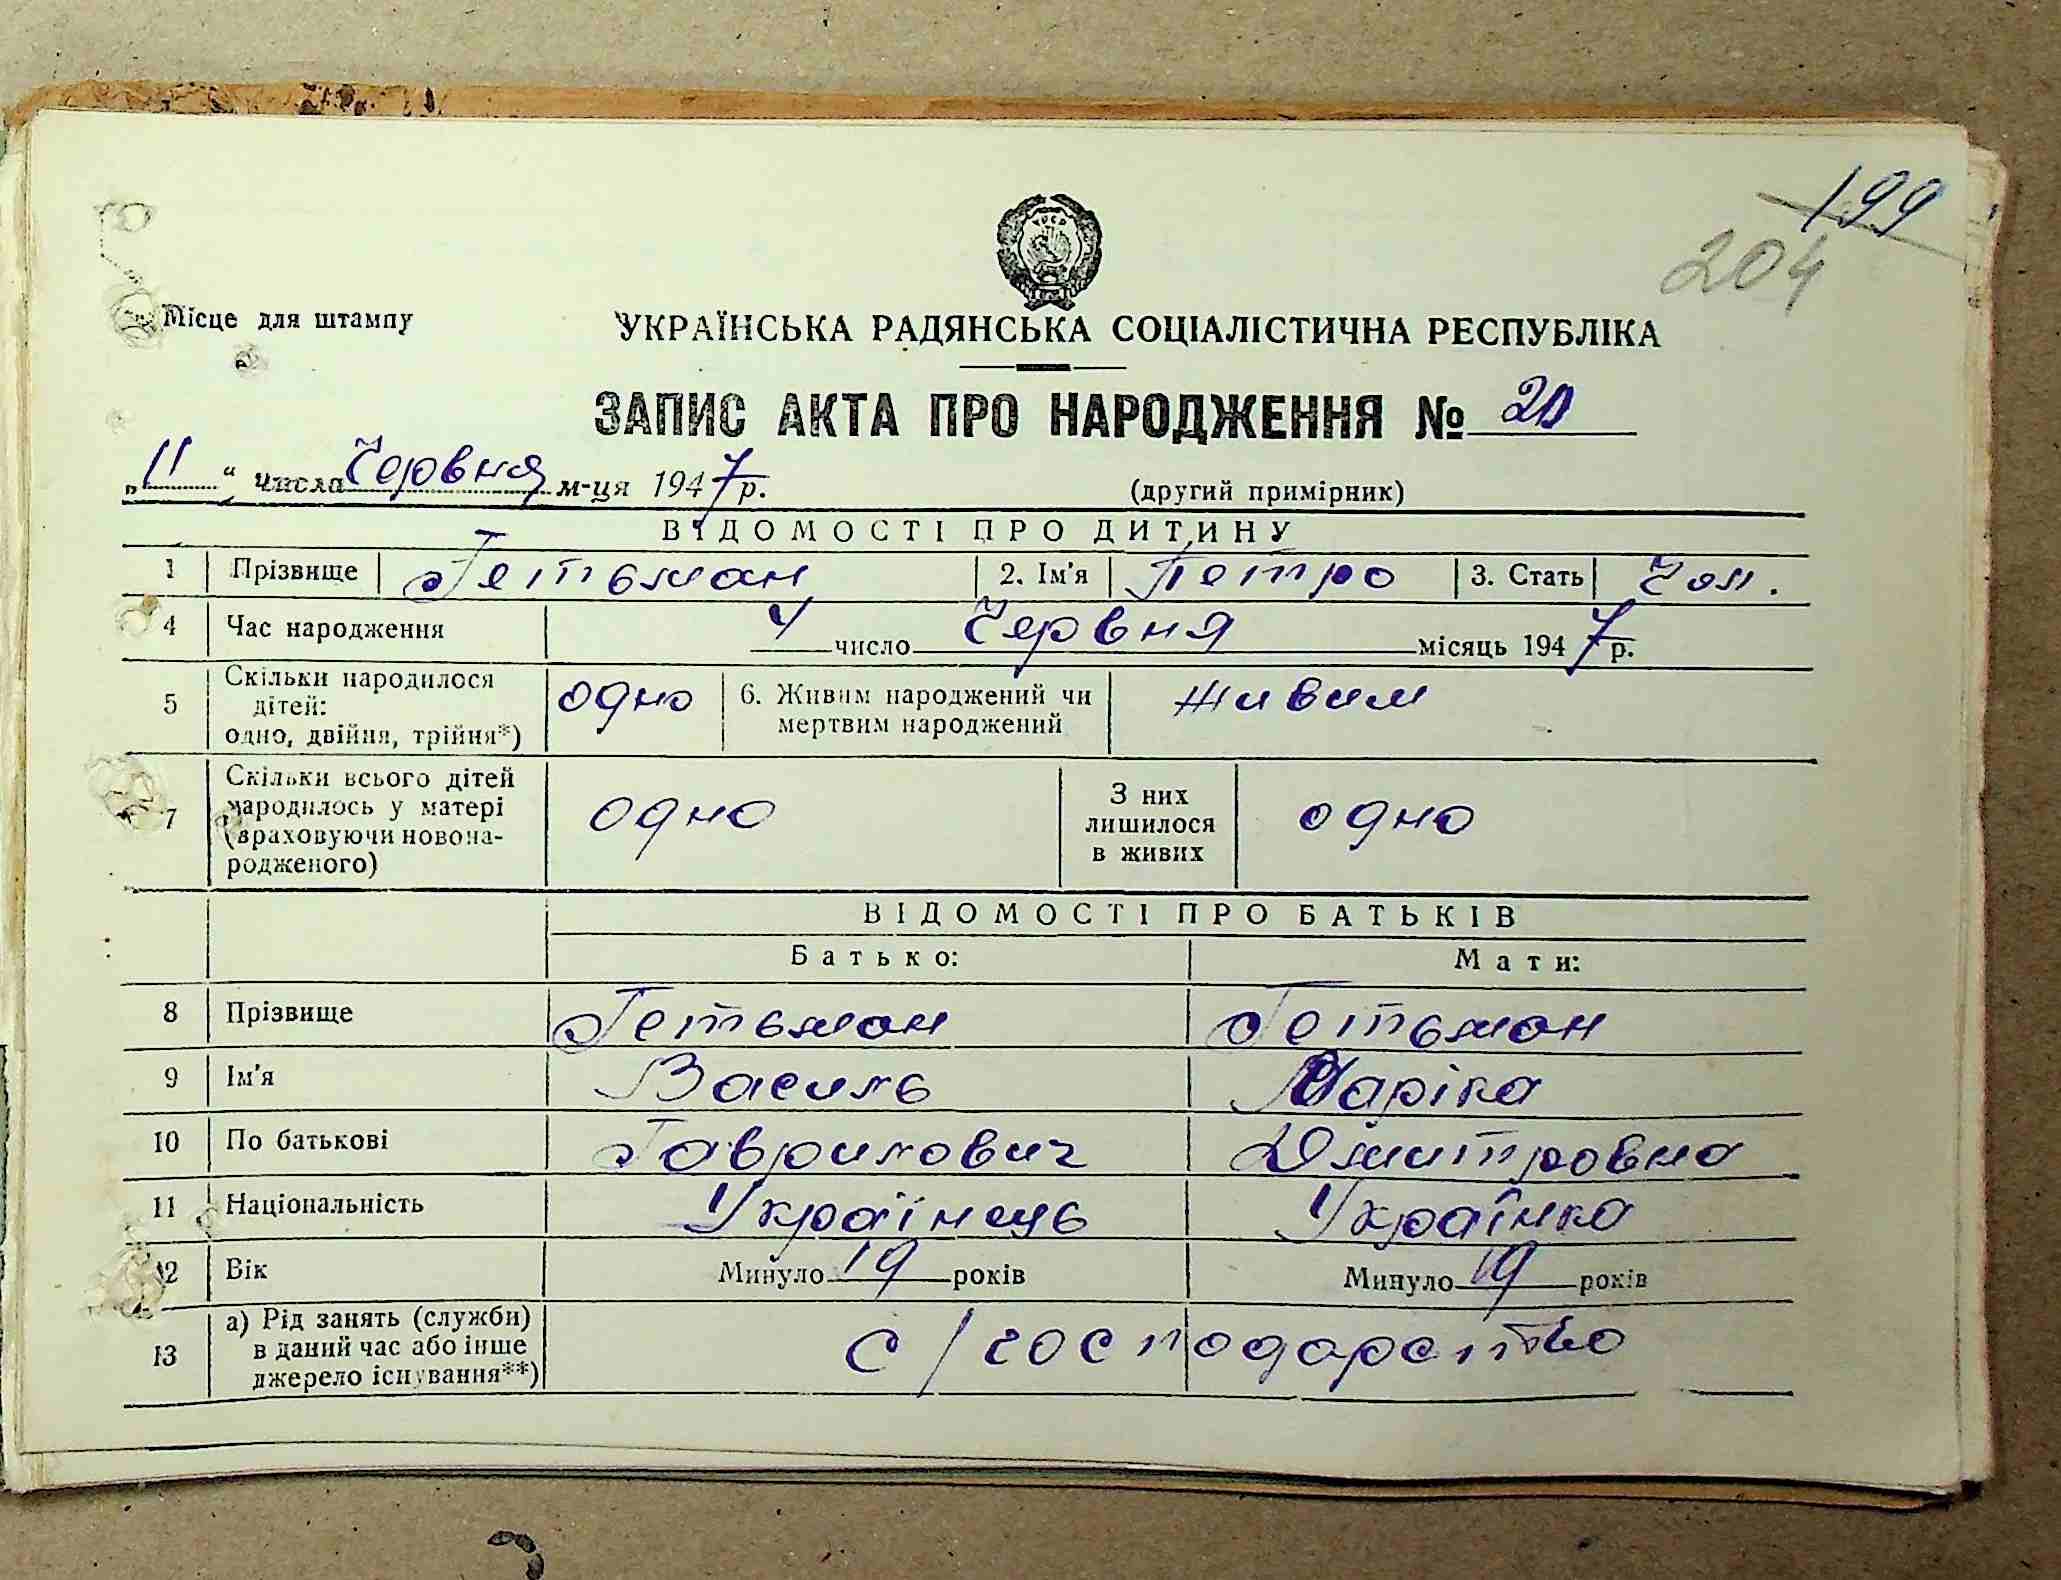 199
204
Місце для штампу
УКРАЇНСЬКА РАДЯНСЬКА СОЦІАЛІСТИЧНА РЕСПУБЛІКА
ЗАПИС АКТА ПРО НАРОДЖЕННЯ № 20
„11“ числа Червня м-ця 1947 р. (другий примірник)
ВІДОМОСТІ ПРО ДИТИНУ
1 Прізвище Гетьман 2. Ім'я Петро 3. Стать Чол.
4 Час народження 4 число Червня місяць 1947 р.
5 Скільки народилося дітей: одно, двійня, трійня*) одно 6. Живим народжений чи мертвим народжений живим
7 Скільки всього дітей народилось у матері (враховуючи новонародженого) одно З них лишилося в живих одно
ВІДОМОСТІ ПРО БАТЬКІВ
Батько: Мати:
8 Прізвище Гетьман Гетьман
9 Ім'я Василь Маріка
10 По батькові Гаврилович Дмитровна
11 Національність Українець Українка
12 Вік Минуло 19 років Минуло 19 років
13 а) Рід занять (служби) в даний час або інше джерело існування**) с/господарство